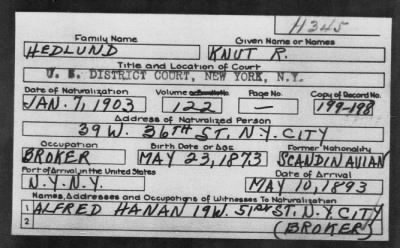 H345
Family Name Given Name or Names
HEDLUND KNUT R.
Title and Location of Court
U. S. DISTRICT COURT, NEW YORK, N.Y.
Date of Naturalization Volume or Bundle No. Page No. Copy of Record No.
JAN. 7, 1903 122 — 199-198
Address of Naturalized Person
39 W. 36TH ST. N.Y. CITY
Occupation Birth Date or Age Former Nationality
BROKER MAY 23, 1873 SCANDINAVIAN
Port of Arrival in the United States Date of Arrival
N.Y. N.Y. MAY 10, 1893
Names, Addresses and Occupations of Witnesses To Naturalization
1 ALFRED HANAN 19 W. 51ST ST. N.Y. CITY
2 (BROKER)